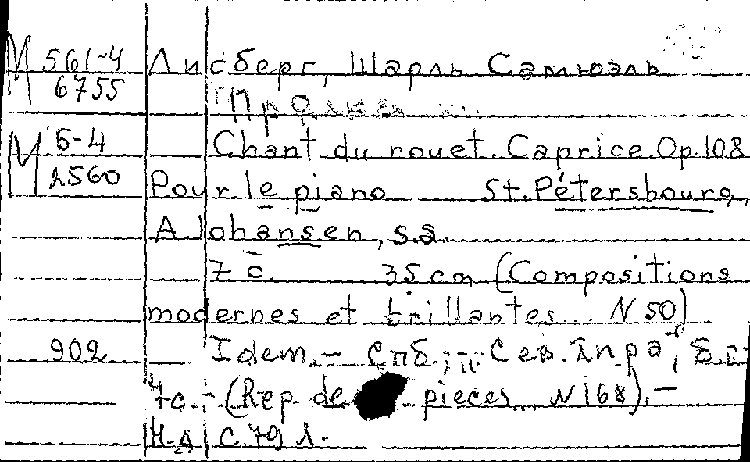 М 561-4 Лисберг, Шарль Самюэль
6755
"Прялка"
М 6-4 Chant du rouet. Caprice. Op. 108
2560 Pour le piano St. Pétersbourg,
A Johansen, s.a.
7 с. 35 cm (Compositions
modernes et brillantes. N 50)
902 Idem. – Спб;
7с. – (Rep de pieces N 168). –
Н.Д